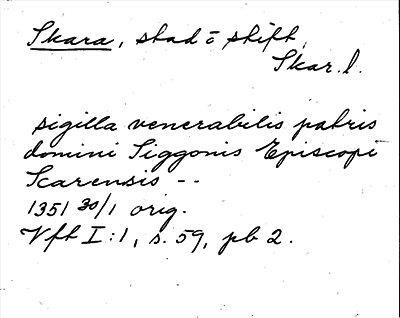 Skara, stad o stift,
Skar. l.
sigilla venerabilis patris
domini Siggonis Episcopi
Scarensis --
1351 30/1 orig.
Vft I:1, s. 59, pb 2.